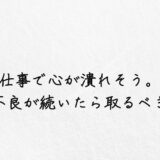 仕事で心が潰れそう。
不良が続いたら取るべき